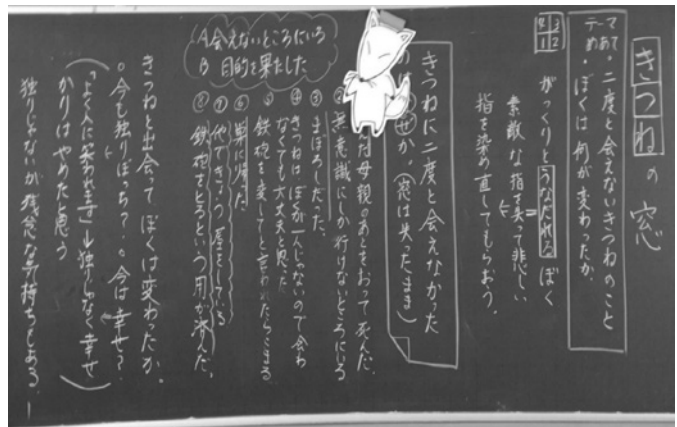 きつねの窓
12/3
テーマ
めあて
・二度と会えないきつねのこと
・ぼくは何が変わったか。
がっくりとうなだれるぼく
素敵な指を失って悲しい
指を染め直してもらおう。
きつねに二度と会えなかった
のはなぜか。(窓は失ったまま)
は母親のあとをおって死んだ。
②無意識にしか行けないところにいる
③まぼろしだった。
④きつねはぼくが一人じゃないので会わ
なくても大丈夫と思った
⑤鉄砲を返してと言われたらこまる
⑥巣に帰った
⑦他できょう屋をしている
⑧鉄砲をとるという用が済んだ。
A 会えないところにいる
B 目的を果たした
きつねと出会ってぼくは変わったか。
○今も独りぼっち?○今は幸せ?
「よく人に笑われます」→独りじゃなく幸せ
かりはやめたと思う
独りじゃないが残念な気持ちもある。